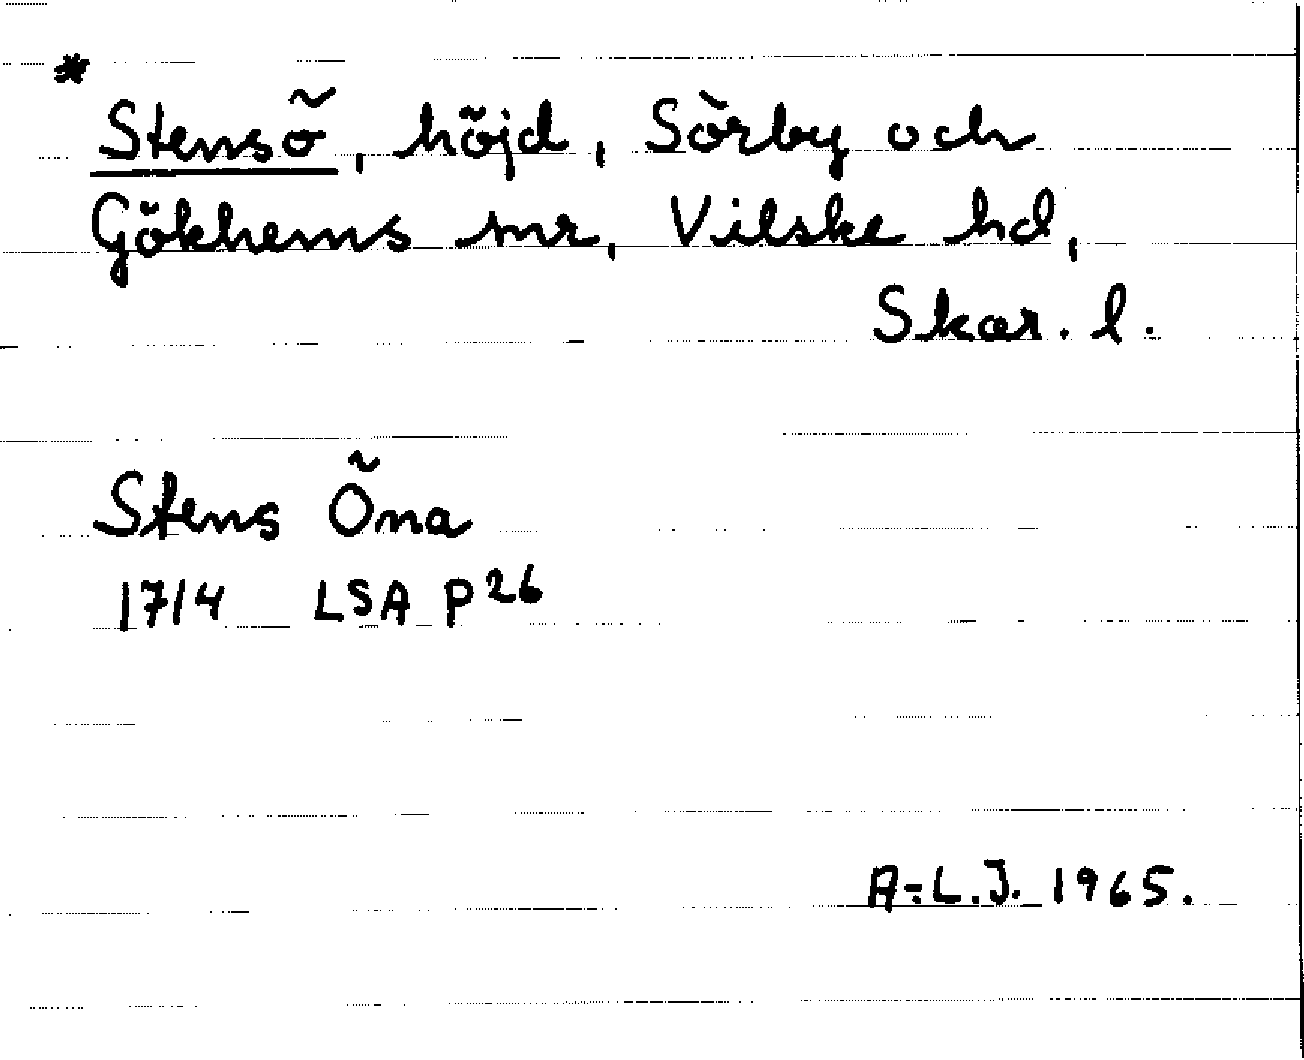 *
Stensö, höjd, Sörby och
Gökhems snr, Vilske hd,
Skar. l.
Stens Öna
1714 LSA P 26
A-L.J. 1965.